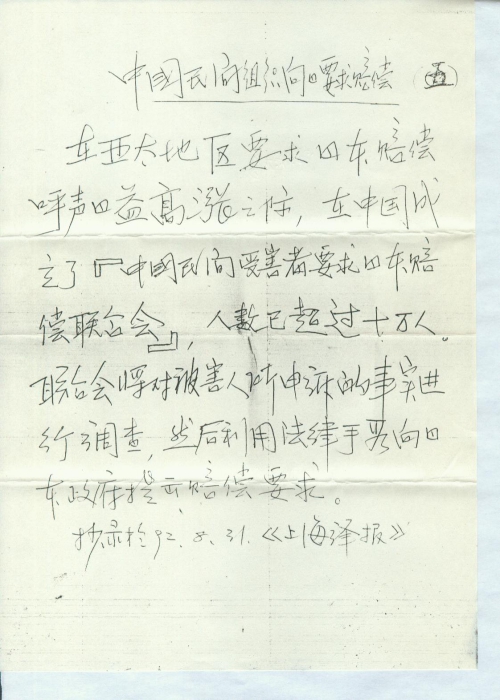 中国民间组织向日要求赔偿 (五)
东亚太地区要求日本赔偿
呼声日益高涨之际，在中国成
立了『中国民间受害者要求日本赔
偿联合会』，人数已超过十万人。
联合会将对被害人所申诉的事实进
行调查，然后利用法律手段向日
本政府提出赔偿要求。
抄录于92.8.31.《上海译报》